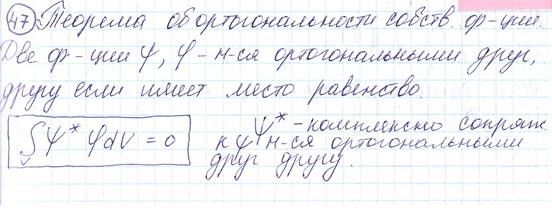 47 Теорема об ортогональности собств. ф-ции.
Две ф-ции Ψ, φ - н-ся ортогональными друг,
другу если имеет место равенство.
∫ᵥ Ψ* φ dV = 0
Ψ* - комплексно сопряж.
к Ψ н-ся ортогональными
друг другу.